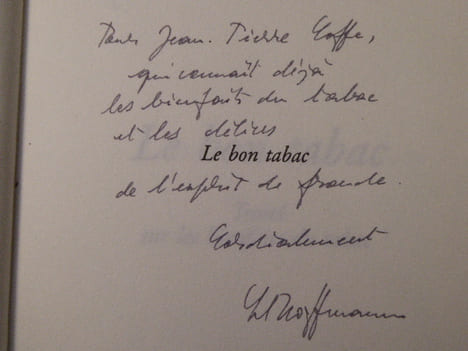 Pour Jean-Pierre Coffe,
qui connaît déjà
les bienfaits du tabac
et les délices
Le bon tabac
de l'esprit de fronde.
Cordialement
Hoffmann